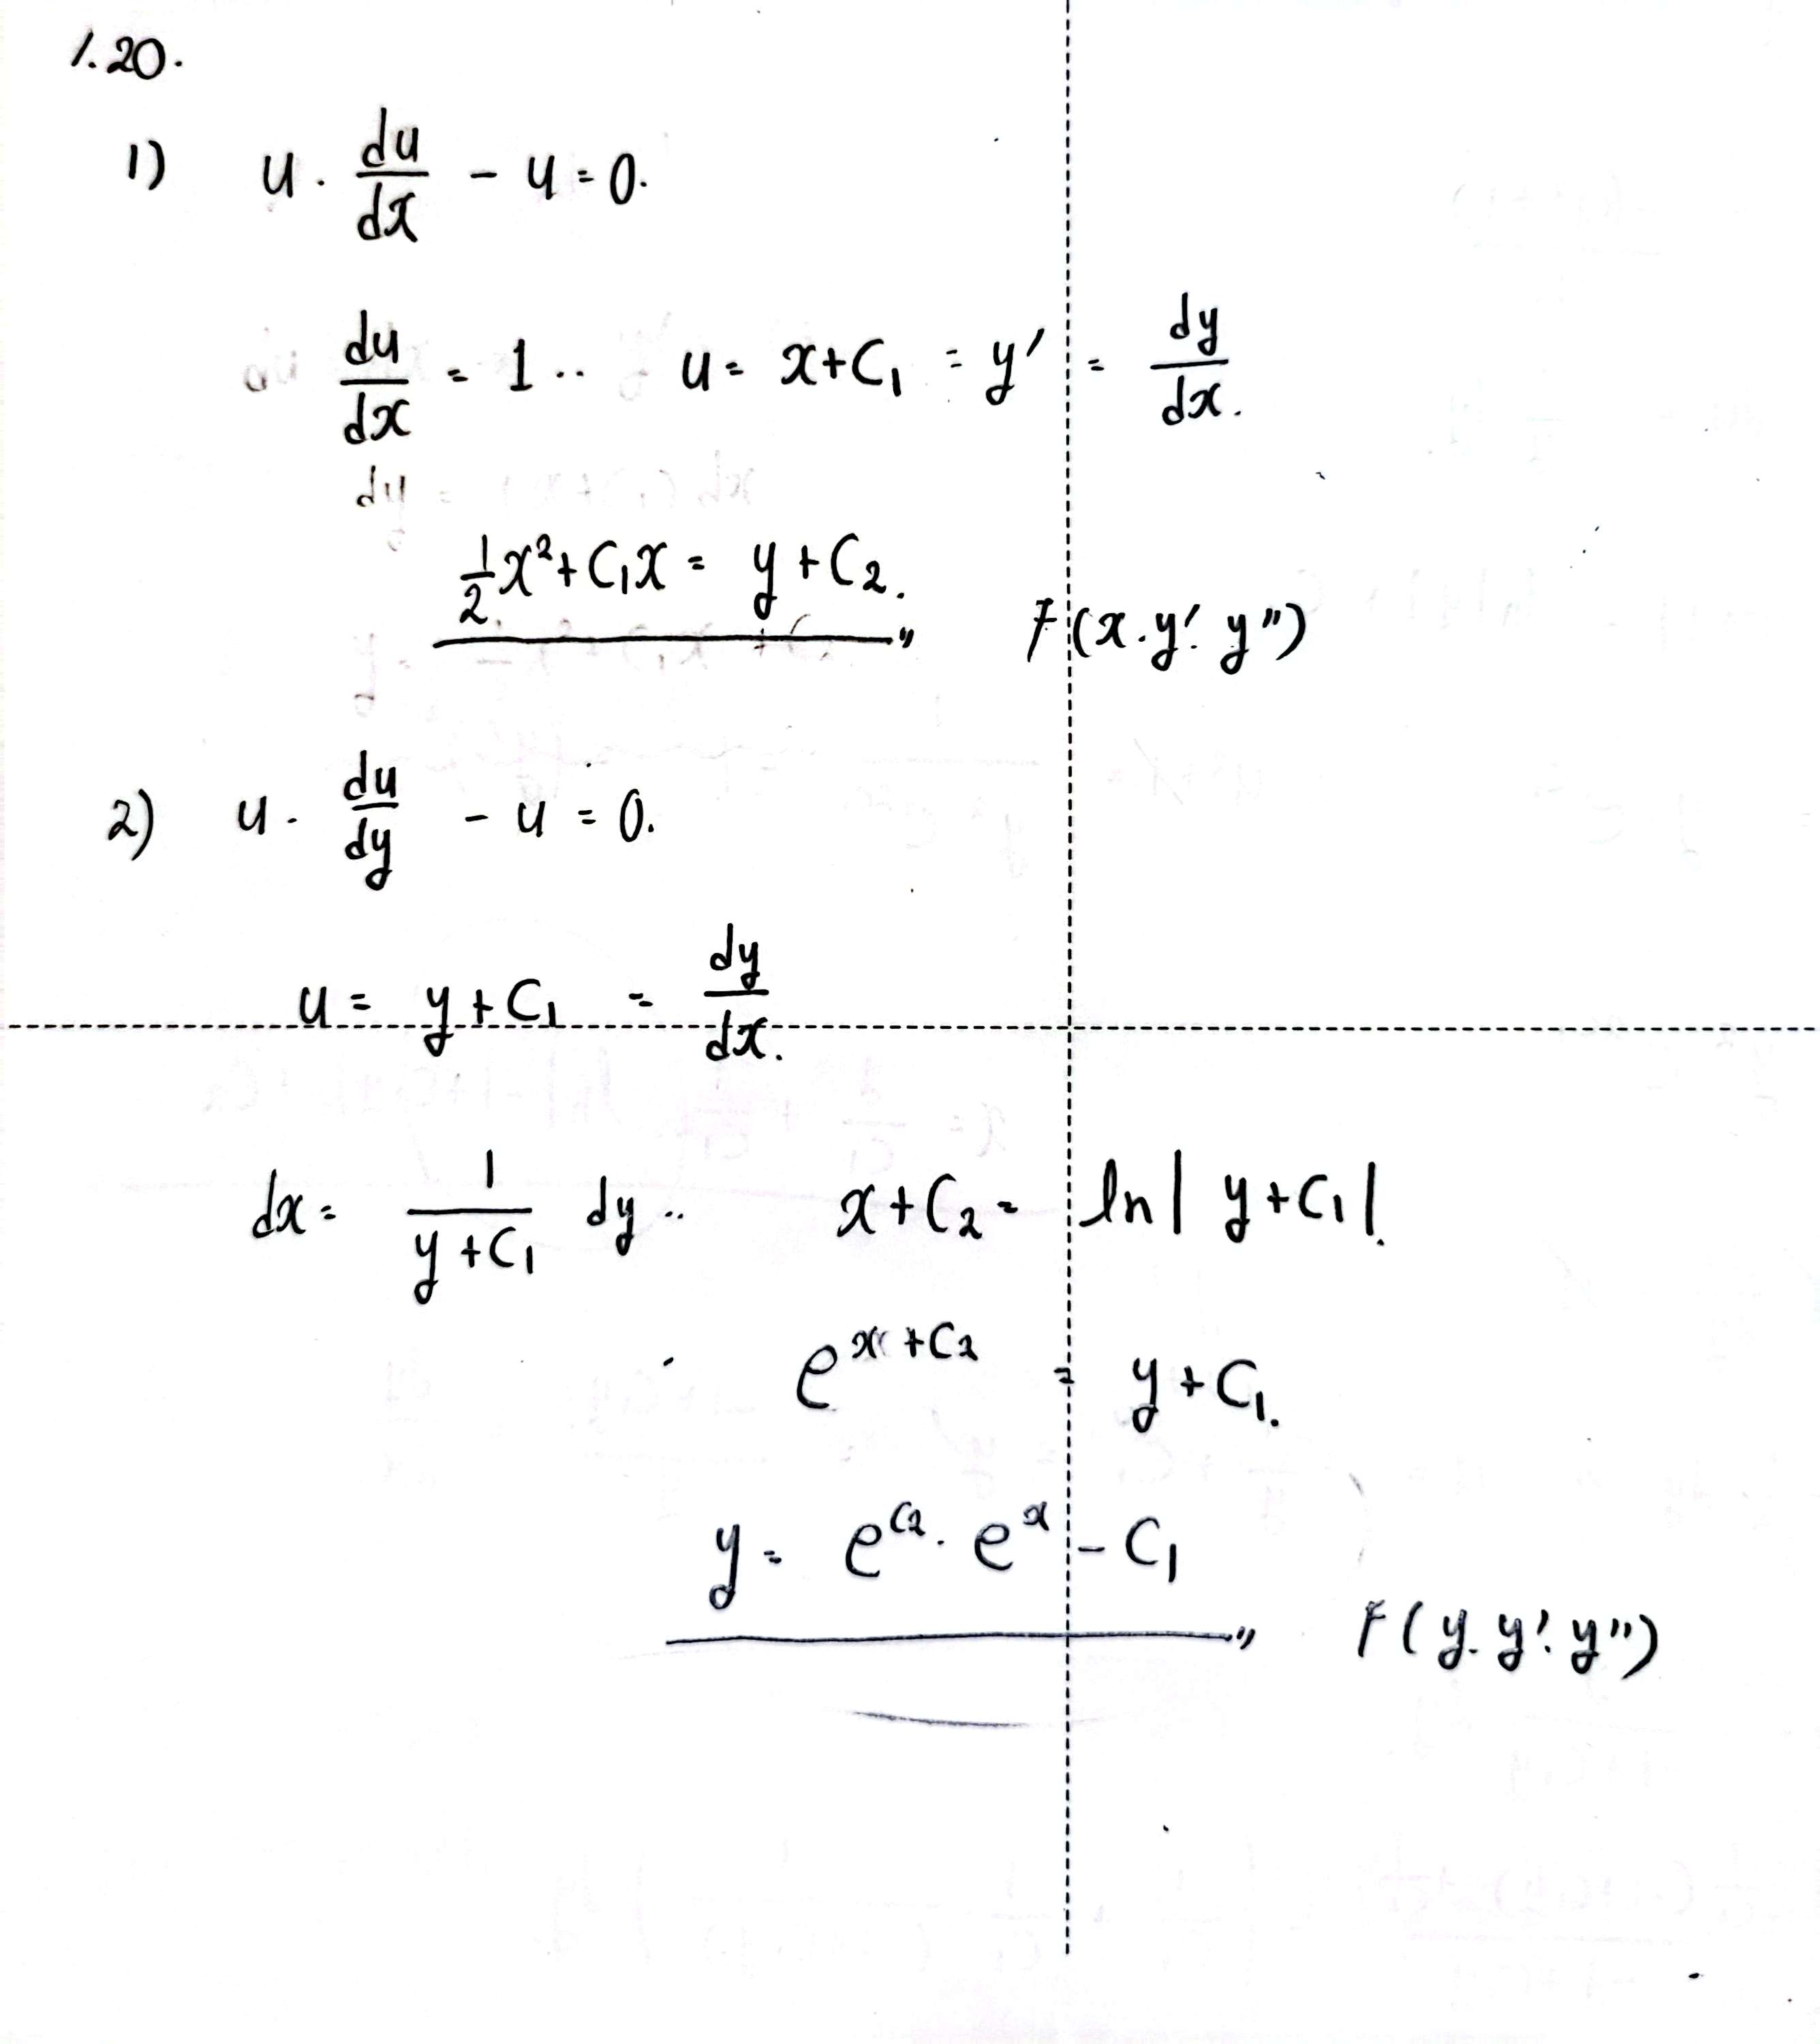 1.20.
1) u · du/dx - u = 0.
du/dx = 1 .. u = x + C₁ = y′ = dy/dx.
du
1/2 x² + C₁x = y + C₂. 〃 F(x.y′. y″)
2) u · du/dy - u = 0.
u = y + C₁ = dy/dx.
dx = 1/(y + C₁) dy .. x + C₂ = ln| y + C₁|.
e^(x + C₂) = y + C₁.
y = e^(C₂) · e^x - C₁ 〃 F(y. y′. y″)